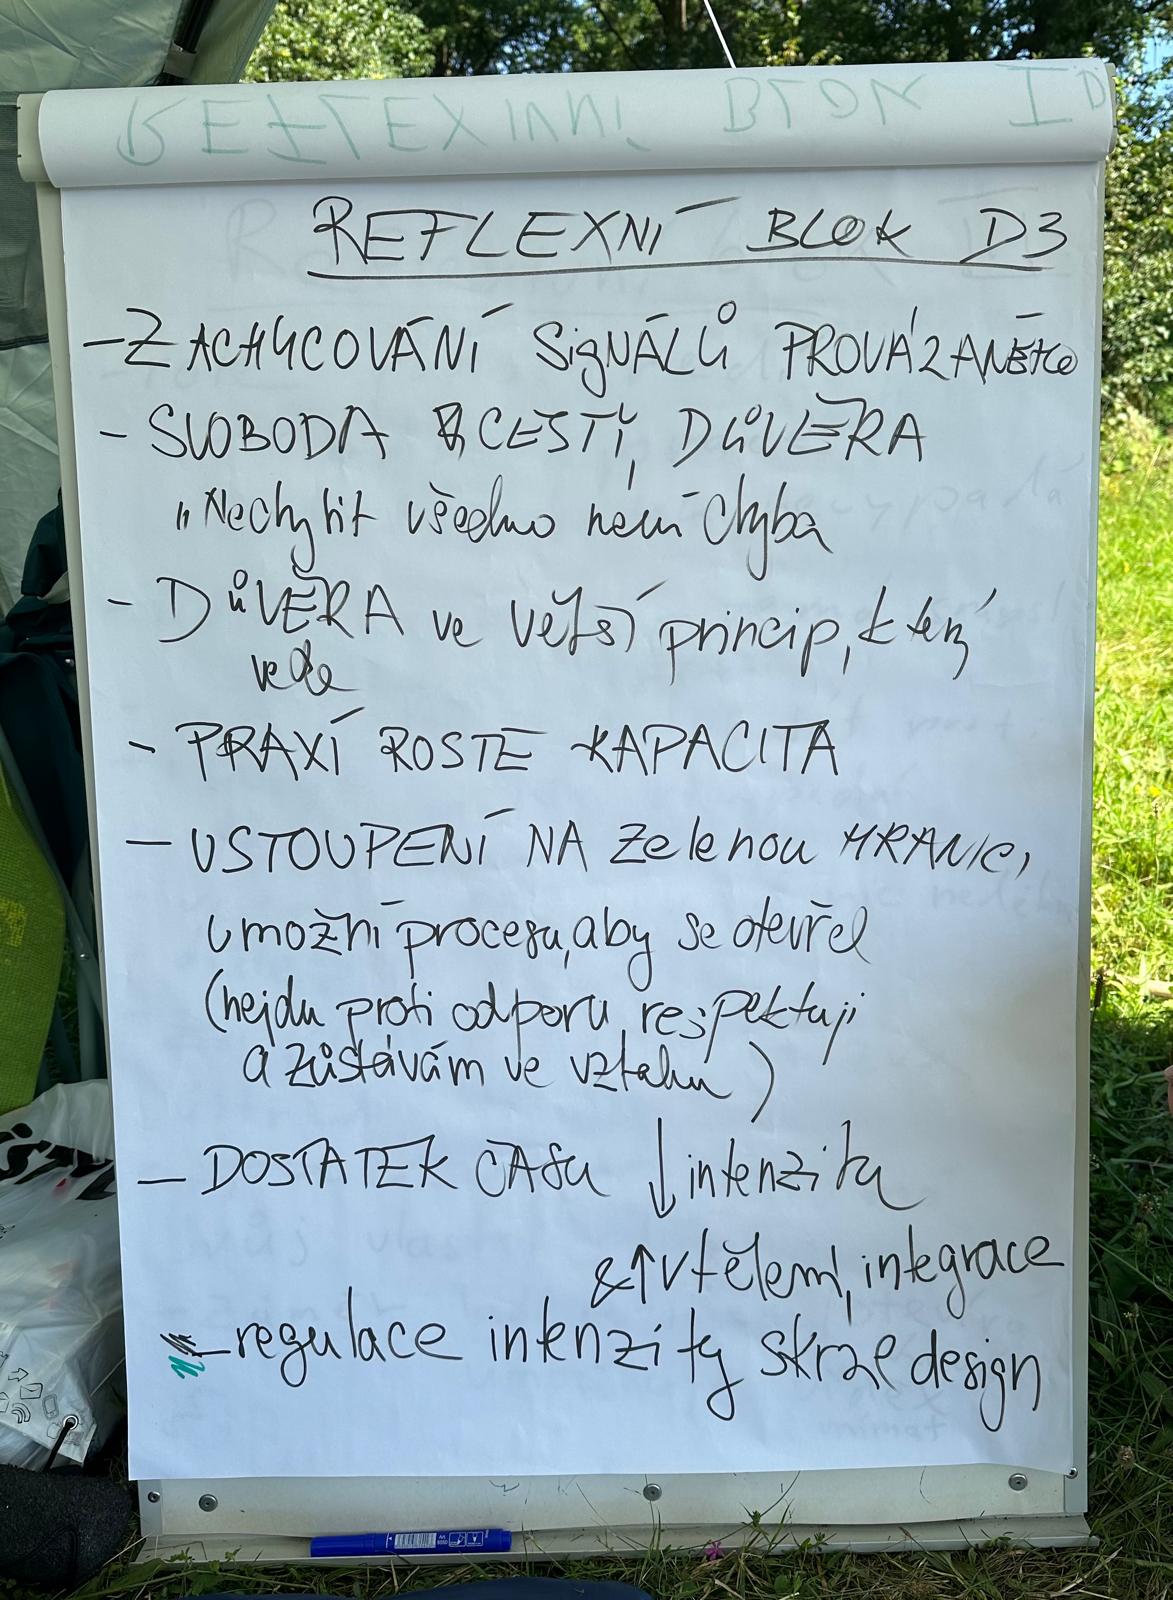 REFLEXIVNÍ BLOK ID
REFLEXNÍ BLOK D3
- ZACHYCOVÁNÍ SIGNÁLŮ PROVÁZANÉHO
- SVOBODA CESTĚ, DŮVĚRA
"Nechytit všechno není chyba
- DŮVĚRA ve větší princip, který
vede
- PRAXÍ ROSTE KAPACITA
- USTOUPENÍ NA zelenou HRANICI,
umožní procesu, aby se otevřel
(nejdu proti odporu, respektuji
a zůstávám ve vztahu)
- DOSTATEK ČASU ↓ intenzita
& ↑ vtělení, integrace
- regulace intenzity skrze design